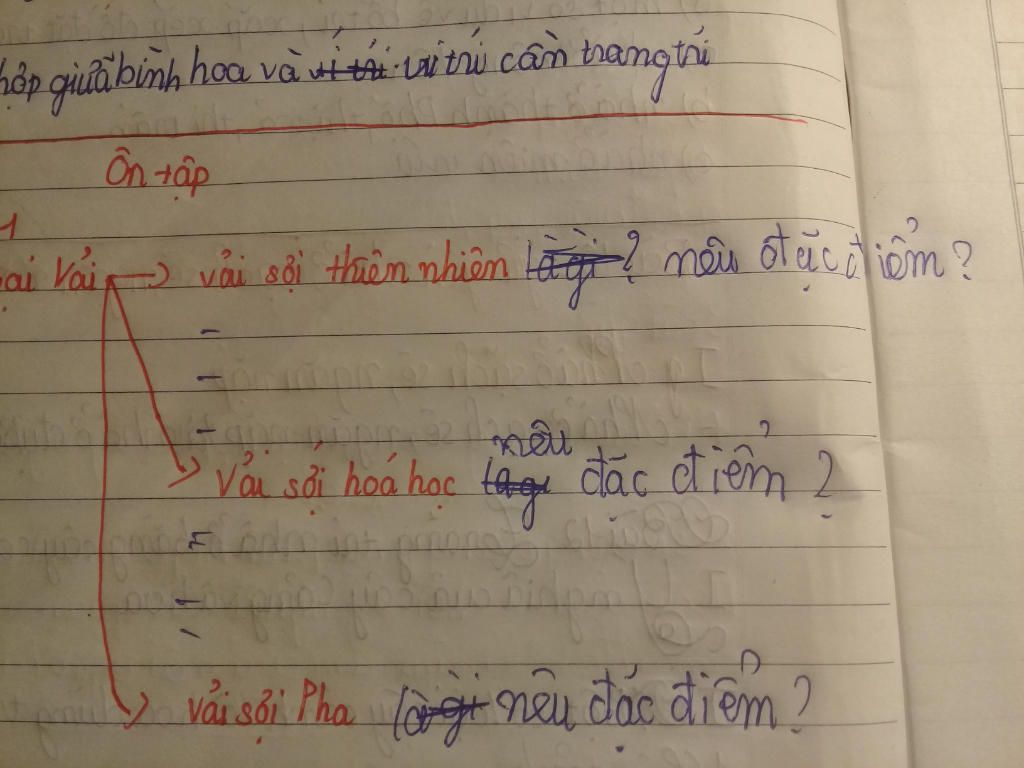 hợp giữa bình hoa và vị trí vị trí cần trang trí
Ôn tập
1
oại vải → vải sợi thiên nhiên là gì? nêu đặc điểm?
-
-
-
nêu
vải sợi hoá học là gì đặc điểm?
-
-
-
vải sợi Pha là gì nêu đặc điểm?